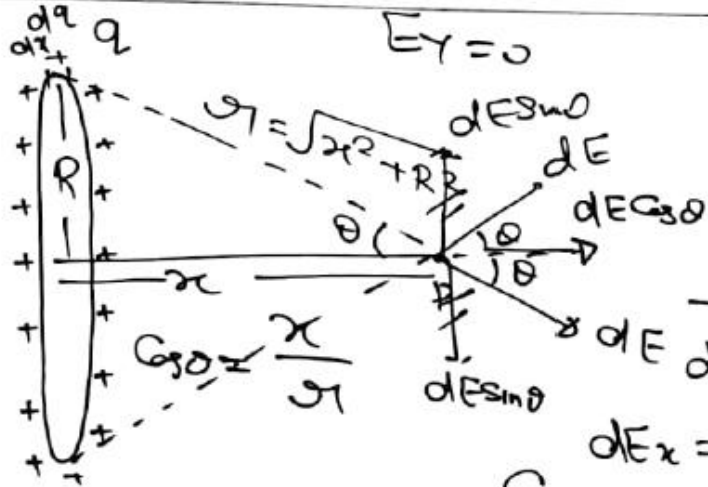 dq
dx q
E_Y = 0
r = √x² + R²
dE Sinθ
dE
R
dE Cosθ
θ
θ
θ
x
P
Cosθ = x/r
dE
dE sinθ
dEx =